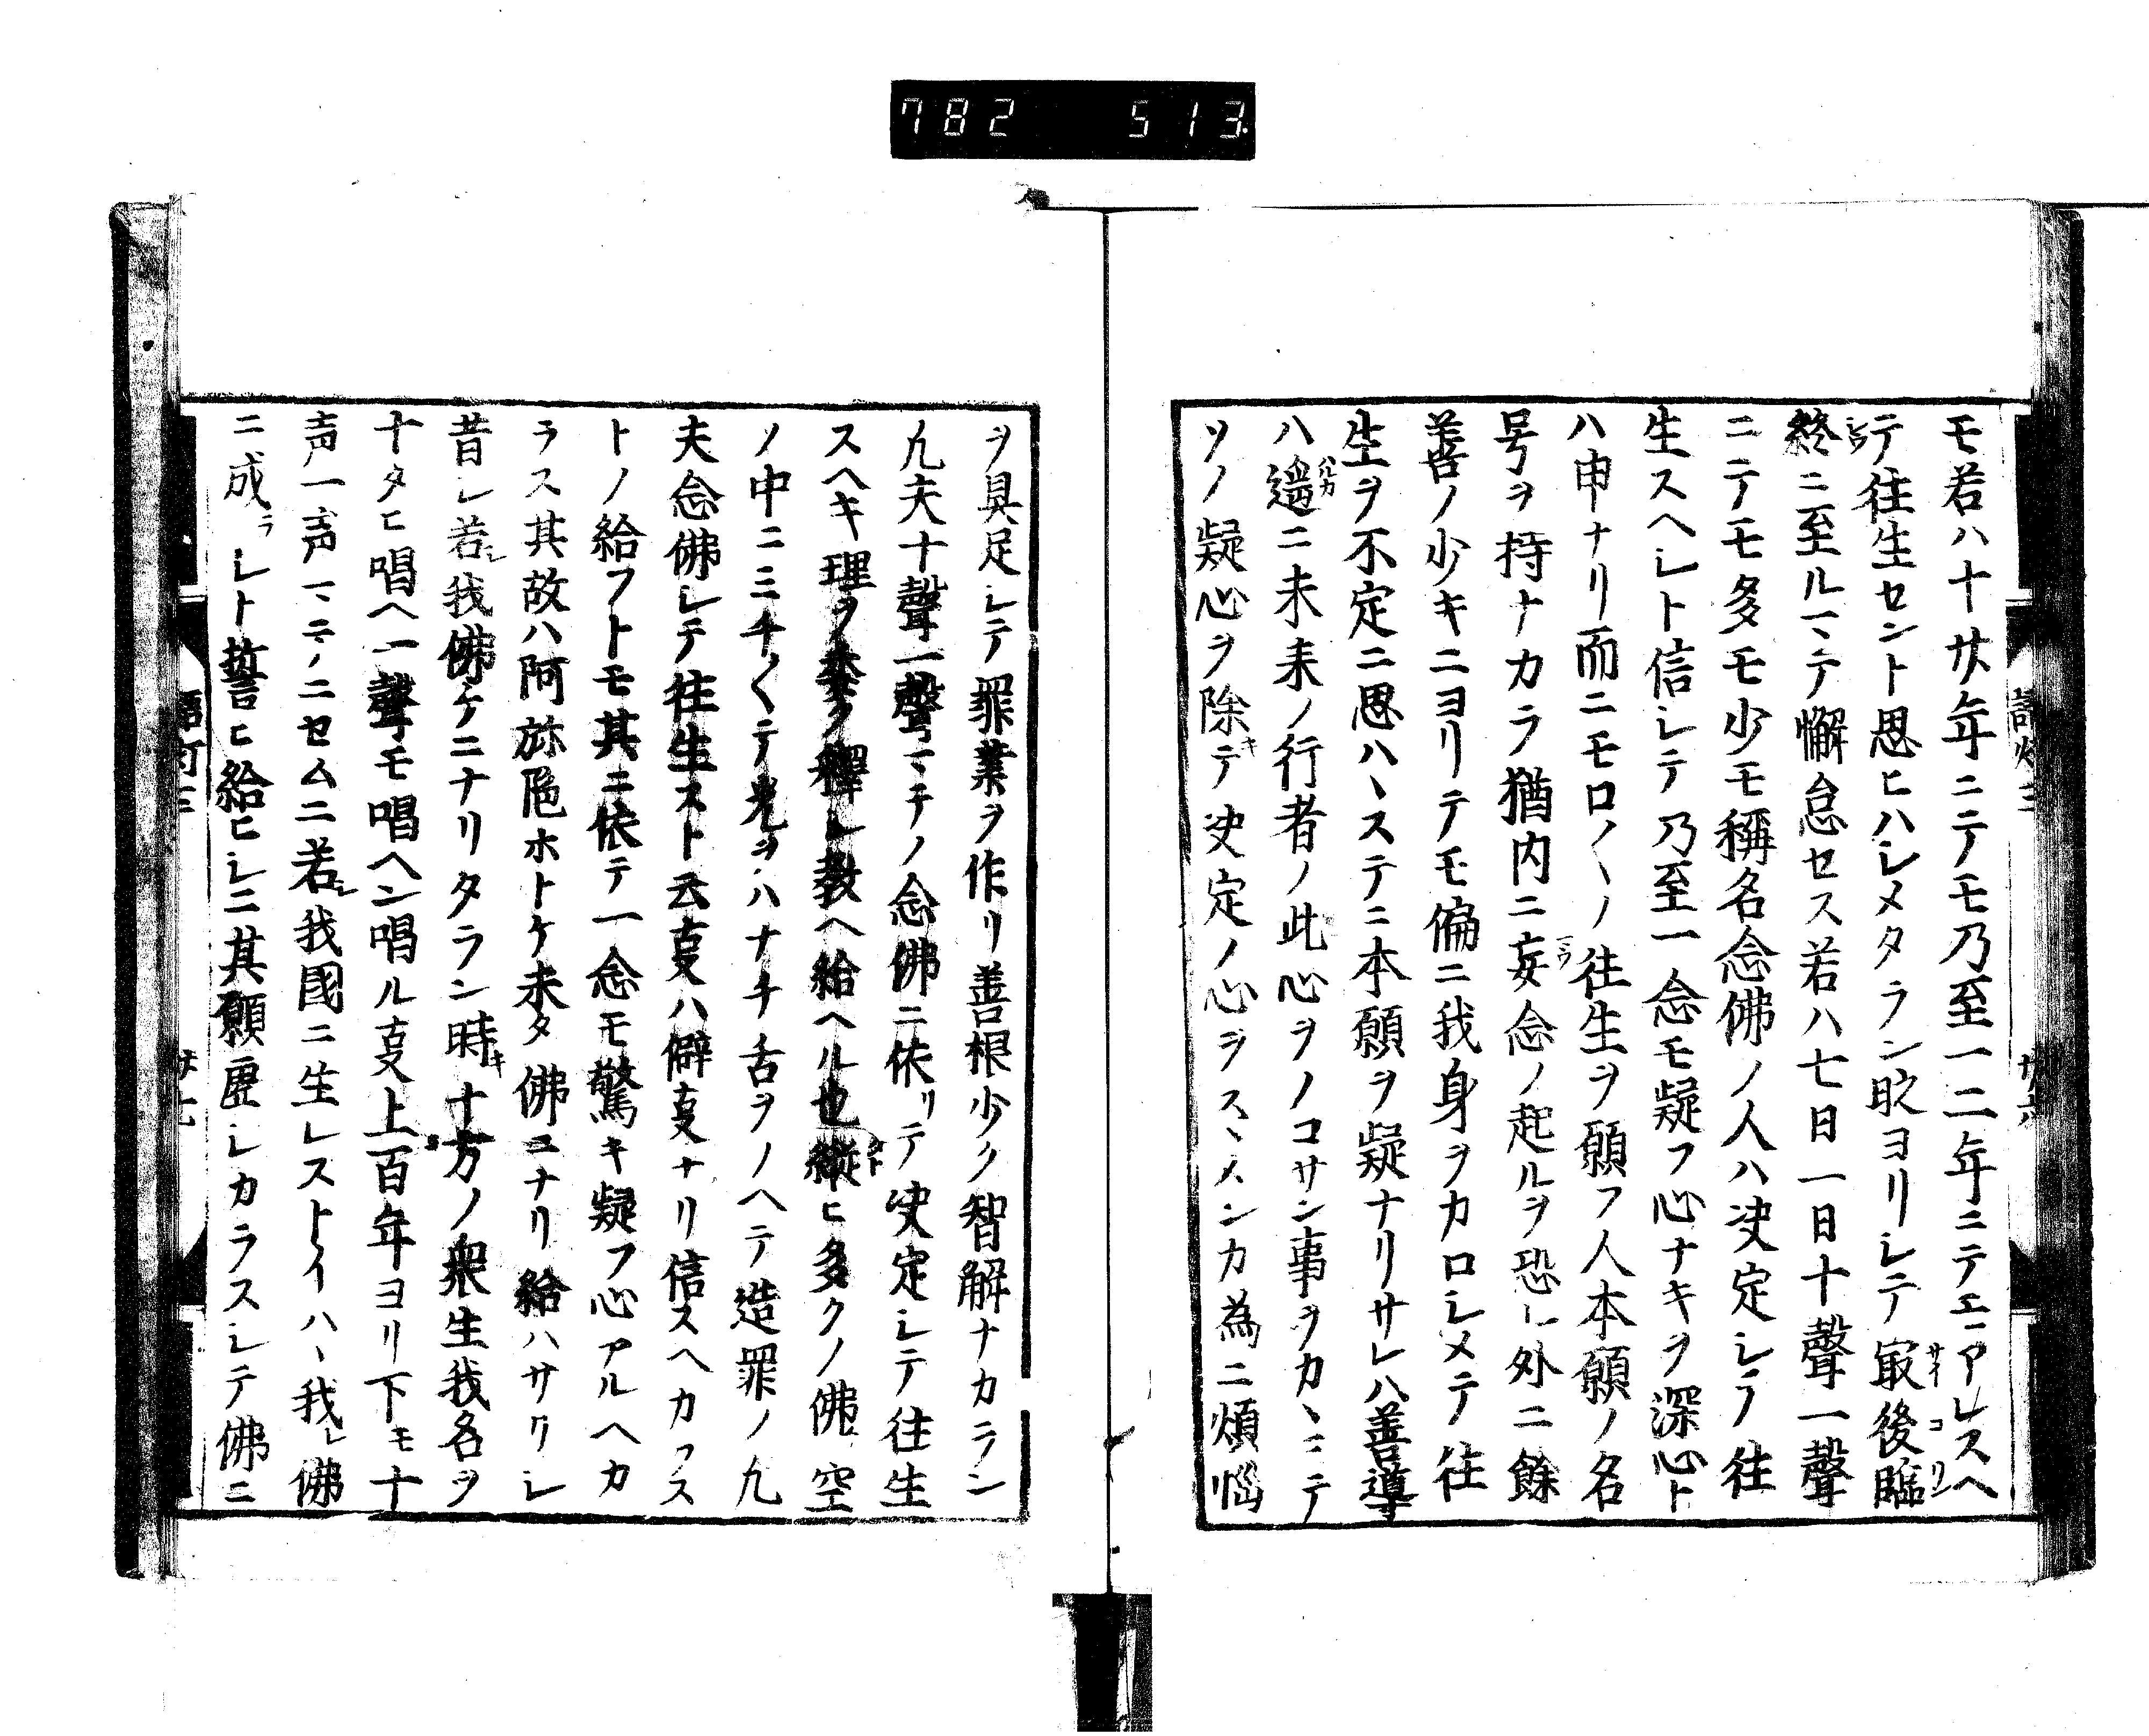 782 513
モ若ハ十廿年ニテモ乃至一二年ニテモアレスヘ
テ往生セント思ヒハシメタラン時ヨリシテ最後臨
終ニ至ルマテ懈怠セス若ハ七日一日十聲一聲
ニテモ多モ少モ稱名念佛ノ人ハ决定シテ往
生スヘシト信シテ乃至一念モ疑フ心ナキヲ深心ト
ハ申ナリ而ニモロ〳〵ノ往生ヲ願フ人本願ノ名
号ヲ持ナカラ猶内ニ妄念ノ起ルヲ恐レ外ニ餘
善ノ少キニヨリテモ偏ニ我身ヲカロシメテ往
生ヲ不定ニ思ハヽステニ本願ヲ疑ナリサレハ善導
ハ遥ニ未来ノ行者ノ此心ヲノコサン事ヲカヽミテ
ソノ疑心ヲ除テ决定ノ心ヲスヽメンカ為ニ煩悩
ヲ具足シテ罪業ヲ作リ善根少ク智解ナカラン
凡夫十聲一聲マテノ念佛ニ依リテ决定シテ往生
スヘキ理ヲ委ク釋シ教ヘ給ヘル也縦ヒ多クノ佛空
ノ中ニミチ〳〵テ光ヲハナチ舌ヲノヘテ造罪ノ凡
夫念佛シテ往生スト云叓ハ僻叓ナリ信スヘカラス
トノ給フトモ其ニ依テ一念モ驚キ疑フ心アルヘカ
ラス其故ハ阿弥陁ホトケ未タ佛ニナリ給ハサリシ
昔シ若シ我佛ケニナリタラン時キ十方ノ衆生我名ヲ
十タヒ唱ヘ一聲モ唱ヘン唱ル叓上百年ヨリ下モ十
声一声マテノニセムニ若シ我國ニ生レストイハヽ我レ佛
ニ成ラシト誓ヒ給ヒシニ其願歴シカラスシテ佛ニ